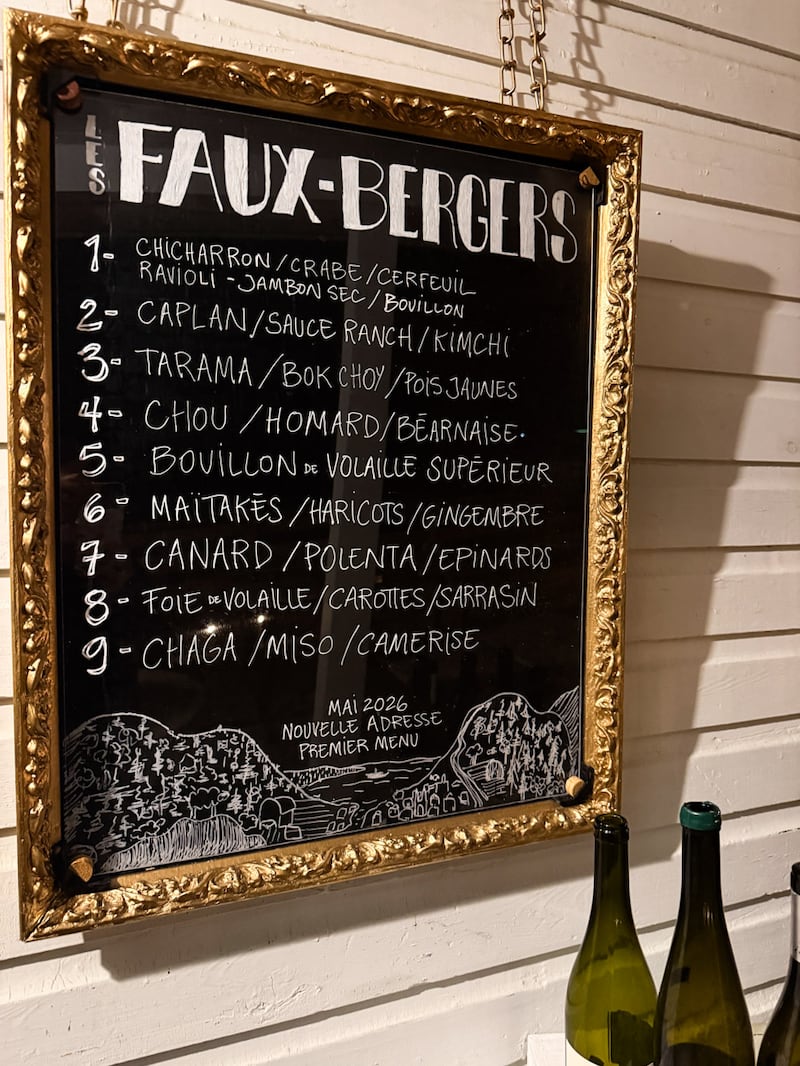 LES FAUX-BERGERS
1- CHICHARRON / CRABE / CERFEUIL
RAVIOLI - JAMBON SEC / BOUILLON
2- CAPLAN / SAUCE RANCH / KIMCHI
3- TARAMA / BOK CHOY / POIS JAUNES
4- CHOU / HOMARD / BÉARNAISE.
5- BOUILLON DE VOLAILLE SUPÉRIEUR
6- MAÏTAKÉS / HARICOTS / GINGEMBRE
7- CANARD / POLENTA / EPINARDS
8- FOIE DE VOLAILLE / CAROTTES / SARRASIN
9- CHAGA / MISO / CAMERISE
MAI 2026
NOUVELLE ADRESSE
PREMIER MENU